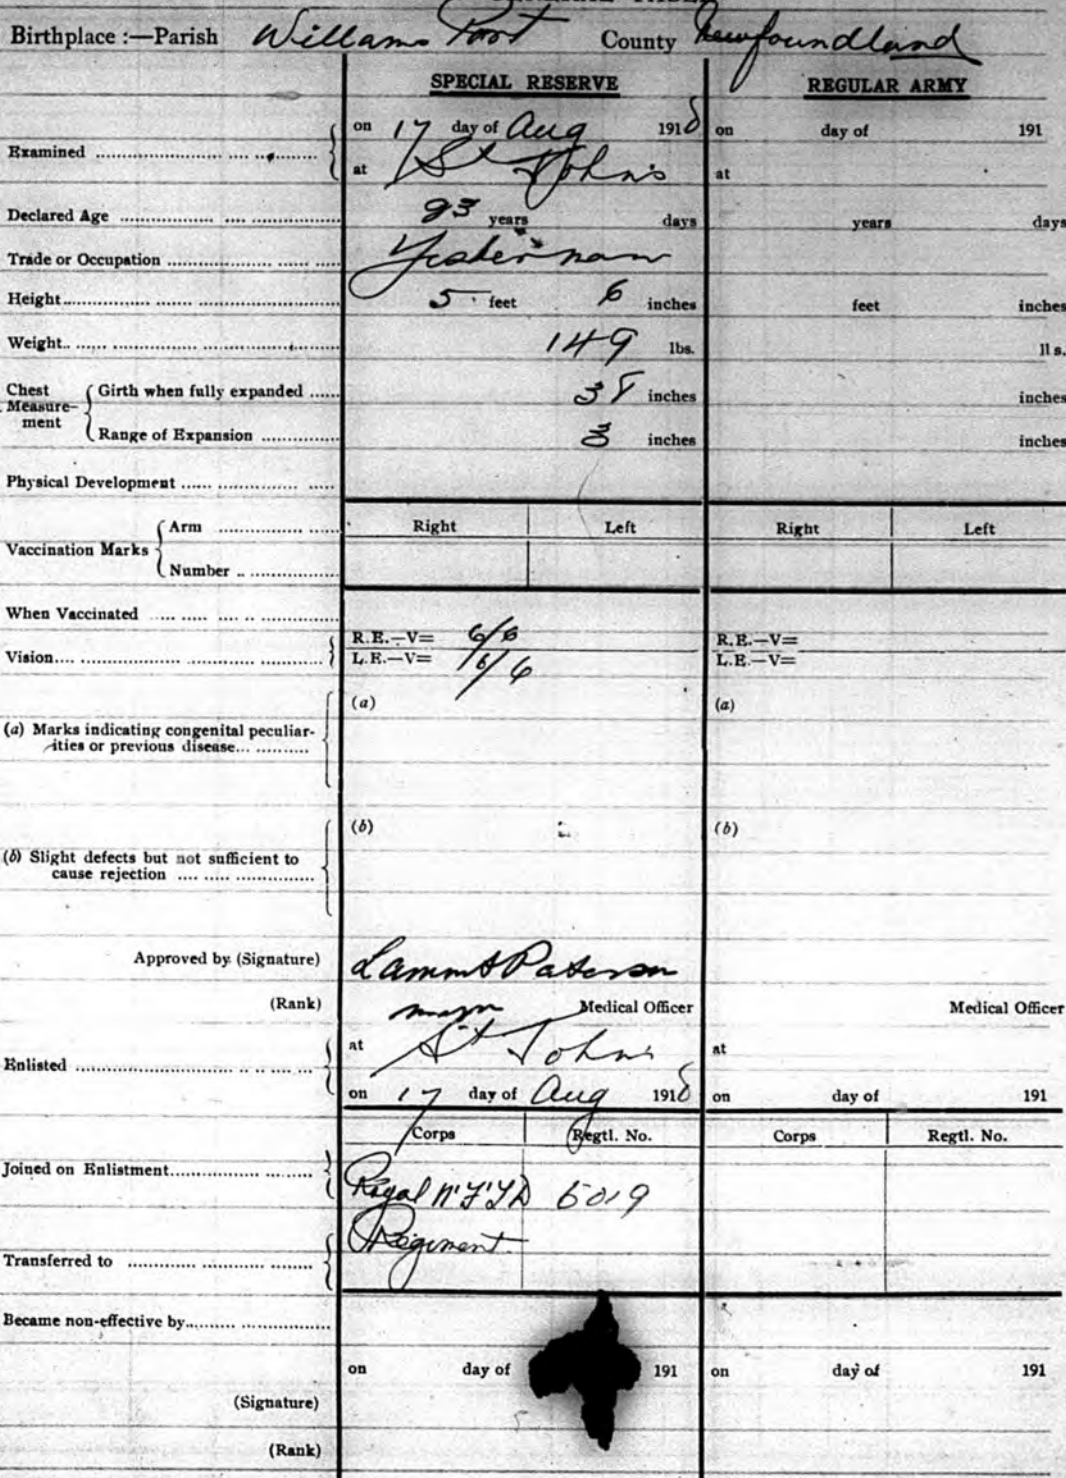 Birthplace :—Parish Williams Port County Newfoundland
SPECIAL RESERVE REGULAR ARMY
Examined on 17 day of Aug 1918 on day of 191
at St John's at
Declared Age 23 years days years days
Trade or Occupation Fisherman
Height 5 feet 6 inches feet inches
Weight 149 lbs. lbs.
Chest Measurement Girth when fully expanded 38 inches inches
Range of Expansion 3 inches inches
Physical Development
Vaccination Marks Arm Right Left Right Left
Number
When Vaccinated
Vision R.E.—V= 6/6 R.E.—V=
L.E.—V= 6/6 L.E.—V=
(a) Marks indicating congenital peculiar- (a) (a)
ities or previous disease
(b) Slight defects but not sufficient to (b) (b)
cause rejection
Approved by (Signature) Lamont Paterson
(Rank) Major Medical Officer Medical Officer
Enlisted at St John's at
on 17 day of Aug 1918 on day of 191
Corps Regtl. No. Corps Regtl. No.
Joined on Enlistment Royal N'F'LD 6019
Regiment
Transferred to
Became non-effective by
on day of 191 on day of 191
(Signature)
(Rank)